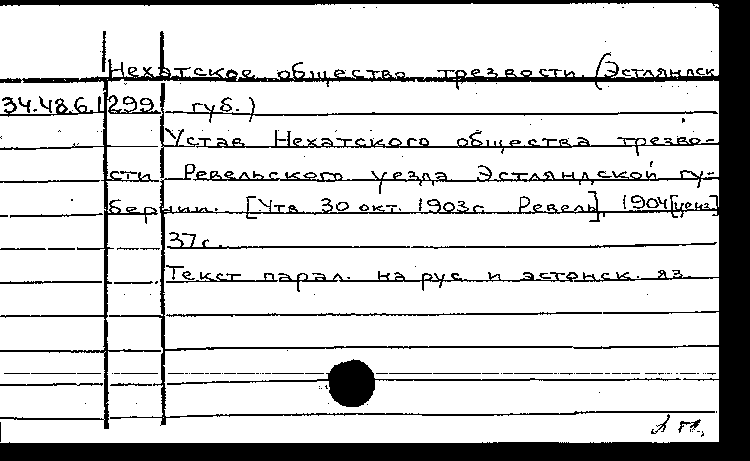 Нехатское общество трезвости. (Эстляндск.
34.48.6.1299 губ.)
Устав Нехатского общества трезво-
сти Ревельского уезда Эстляндской гу-
бернии. [Утв 30 окт. 1903г. Ревель], 1904[ценз]
37с.
Текст парал. на рус. и эстонск. яз.